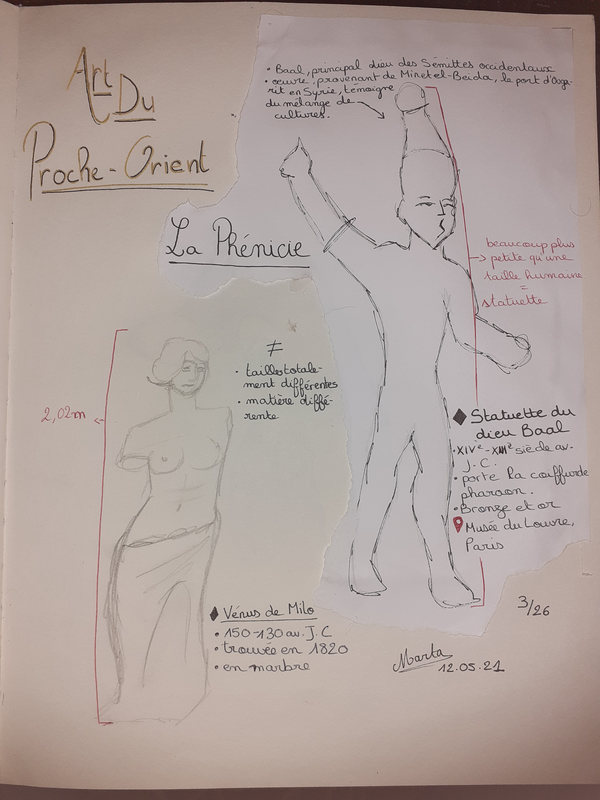 Art
Du
Proche-Orient
• Baal, principal dieu des Sémittes occidentaux
• œuvre, provenant de Minet el-Beida, le port d'Ouga-
rit en Syrie, témoigne
du mélange de
cultures.
La Phénicie
beaucoup plus
petite qu'une
taille humaine
=
statuette
≠
• tailles totale-
ment différentes
• matière diffé-
rente
2,02m
◆ Statuette du
dieu Baal
• XIVe-XIIIe siècle av.
J.C.
• porte la coiffure de
pharaon.
• Bronze et or
Musée du Louvre,
Paris
◆ Vénus de Milo
• 150-130 av. J.C
• trouvée en 1820
• en marbre
3/26
Marta
12.05.21